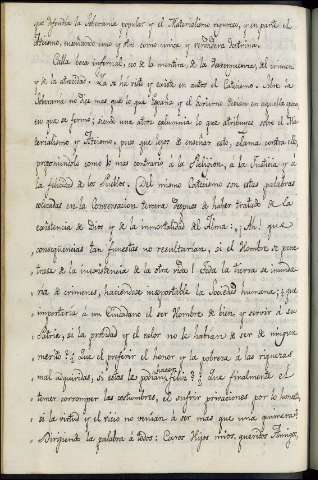 que difunda la Soberania popular y el Materialismo riguroso, y en parte el
Ateismo, enseñando uno y otro como unica y verdadera doctrina.
Calla boca infernal, eco de la mentira, de la desverguenza, del crimen
y de la atrocidad. Ya se há visto y existe en autos el Catecismo. Sobre la
Soberania no dá mas que lo que España y el Govierno tenian en aquella epoca
en que se formó; siendo una atroz calumnia lo que atribuies sobre el Ma-
terialismo y Ateismo, pues que lejos de enseñar esto, clama contra ello,
proponiendole como lo mas contrario á la Religion, á la Justicia y á
la felicidad de los Pueblos. Del mismo Catecismo son estas palabras
colocadas en la Conversacion tercera despues de haber tratado de la
existencia de Dios y de la inmortalidad del Alma: "¡Ah! que
consequencias tan funestas no resultarian, si el Hombre se pene-
trase de la inconsistencia de la otra vida! Toda la tierra se inunda-
ria de crimenes, haciendose insoportable la Sociedad humana; ¿que
importaria á un Ciudadano el ser Hombre de bien, y servir á su
Patria, si la probidad y el valor no le habian de ser de ningun
merito? ¿Que el preferir el honor y la pobreza á las riquezas
mal adquiridas, si estas les podian hacer feliz? ¿Que finalmente el
temer corromper las costumbres, el sufrir privaciones por lo honesto,
si la virtud y el vicio no venian á ser mas que una quimera?
Dirigiendo la palabra á todos: Caros Hijos mios, queridos Amigos,